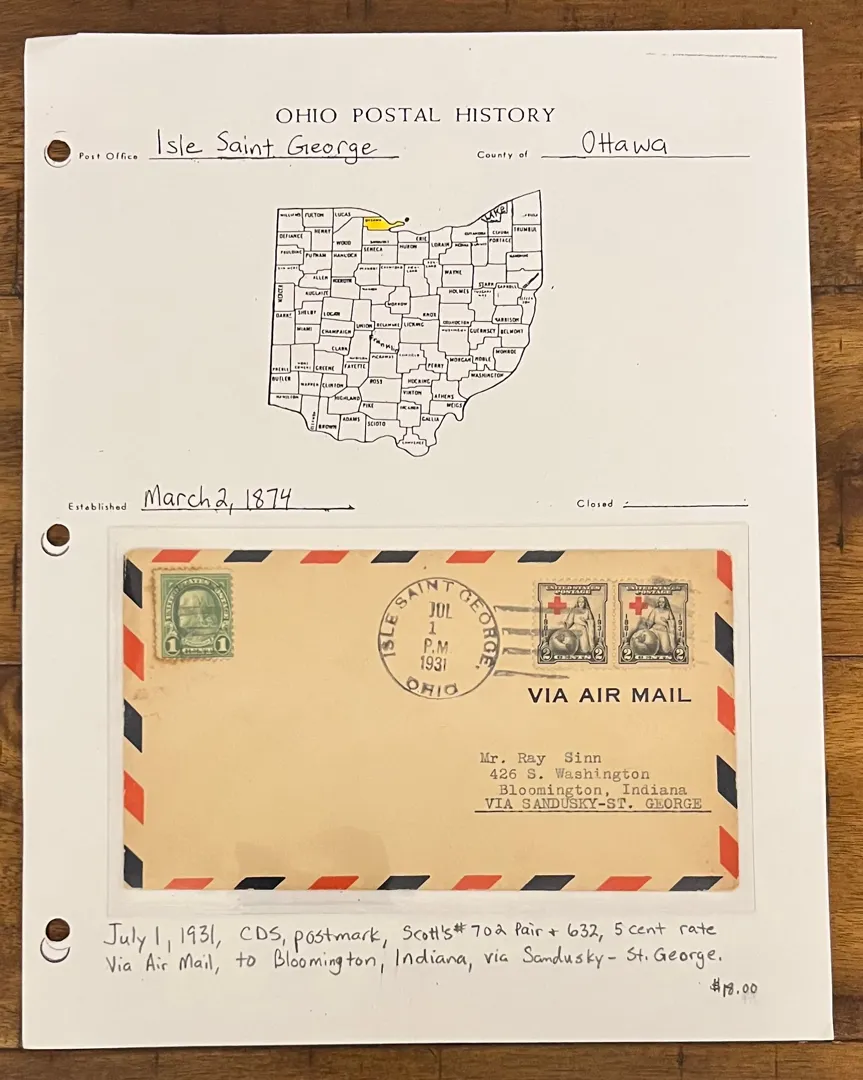 OHIO POSTAL HISTORY
Post Office Isle Saint George County of Ottawa
WILLIAMS FULTON LUCAS
Lake
DEFIANCE HENRY WOOD ERIE LORAIN PORTAGE TRUMBUL
PAULDING PUTNAM HANCOCK SENECA HURON MEDINA
ALLEN WAYNE
MERCER AUGLAIZE HOLMES STARK CARROLL
DARKE SHELBY LOGAN MORROW KNOX HARRISON
MIAMI CHAMPAIGN UNION DELAWARE LICKING COSHOCTON GUERNSEY BELMONT
CLARK Franklin MONROE
PREBLE GREENE FAYETTE PICKAWAY PERRY MORGAN NOBLE
BUTLER WARREN CLINTON ROSS HOCKING WASHINGTON
HAMILTON HIGHLAND VINTON ATHENS
PIKE MEIGS
BROWN ADAMS SCIOTO GALLIA
Established March 2, 1874 Closed
UNITED STATES POSTAGE
1 1
ISLE SAINT GEORGE.
JUL
1
P.M
1931
OHIO
UNITED STATES
POSTAGE
1881 1931
2 CENTS 2
UNITED STATES
POSTAGE
1881 1931
2 CENTS 2
VIA AIR MAIL
Mr. Ray Sinn
426 S. Washington
Bloomington, Indiana
VIA SANDUSKY-ST. GEORGE
July 1, 1931, CDS, postmark, Scott's # 702 Pair + 632, 5 cent rate
Via Air Mail, to Bloomington, Indiana, via Sandusky - St. George.
$18.00